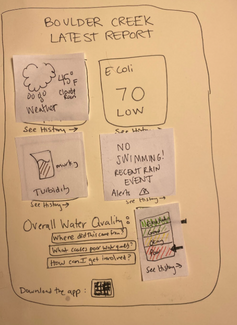 BOULDER CREEK
LATEST REPORT
45° F
Cloudy
Rain
Weather
See History →
E Coli
70
LOW
murky
Turbidity
See History →
NO
SWIMMING!
RECENT RAIN
EVENT
Alerts
Overall Water Quality:
Where did this come from?
What causes poor water quality?
How can I get involved?
Good
Okay
Poor
See History →
Download the app: